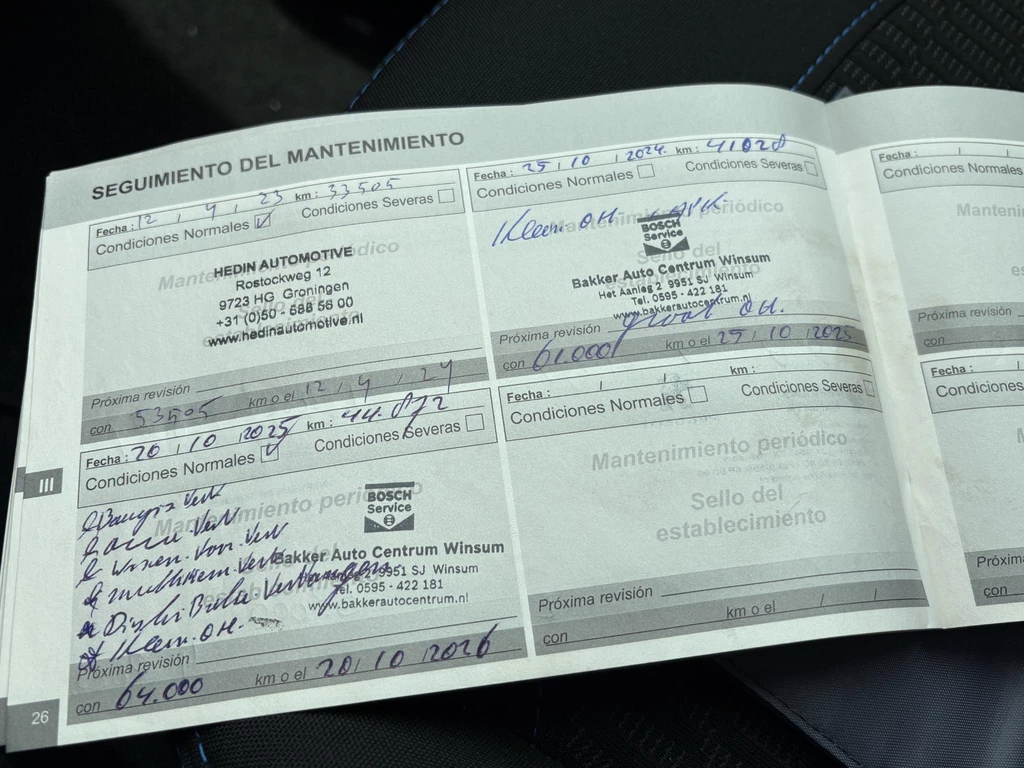 SEGUIMIENTO DEL MANTENIMIENTO
Fecha : 12 / 9 / 23 km : 33505
Condiciones Normales Condiciones Severas
Mantenimiento periódico
Sello del establecimiento
HEDIN AUTOMOTIVE
Rostockweg 12
9723 HG Groningen
+31 (0)50 - 688 56 00
www.hedinautomotive.nl
Próxima revisión
con 53505 km o el 12 / 9 / 24
Fecha : 25 / 10 / 2024 km : 41028
Condiciones Normales Condiciones Severas
Mantenimiento periódico
Sello del establecimiento
Klein OH. + APK.
BOSCH
Service
Bakker Auto Centrum Winsum
Het Aanleg 2 9951 SJ Winsum
Tel. 0595 - 422 181
www.bakkerautocentrum.nl
Próxima revisión groot OH.
con 61.000 km o el 25 / 10 / 2025
Fecha : 20 / 10 / 2025 km : 44.872
Condiciones Normales Condiciones Severas
Mantenimiento periódico
BOSCH
Service
Bakker Auto Centrum Winsum
9951 SJ Winsum
Tel. 0595 - 422 181
www.bakkerautocentrum.nl
Klein. OH.
Próxima revisión
con 64.000 km o el 20 / 10 / 2026
Fecha : / / km :
Condiciones Normales Condiciones Severas
Mantenimiento periódico
Sello del
establecimiento
Próxima revisión
con km o el / /
Fecha : / /
Condiciones Normales
Próxima revisión
con
Fecha :
Condiciones
Próxima
con
III
26